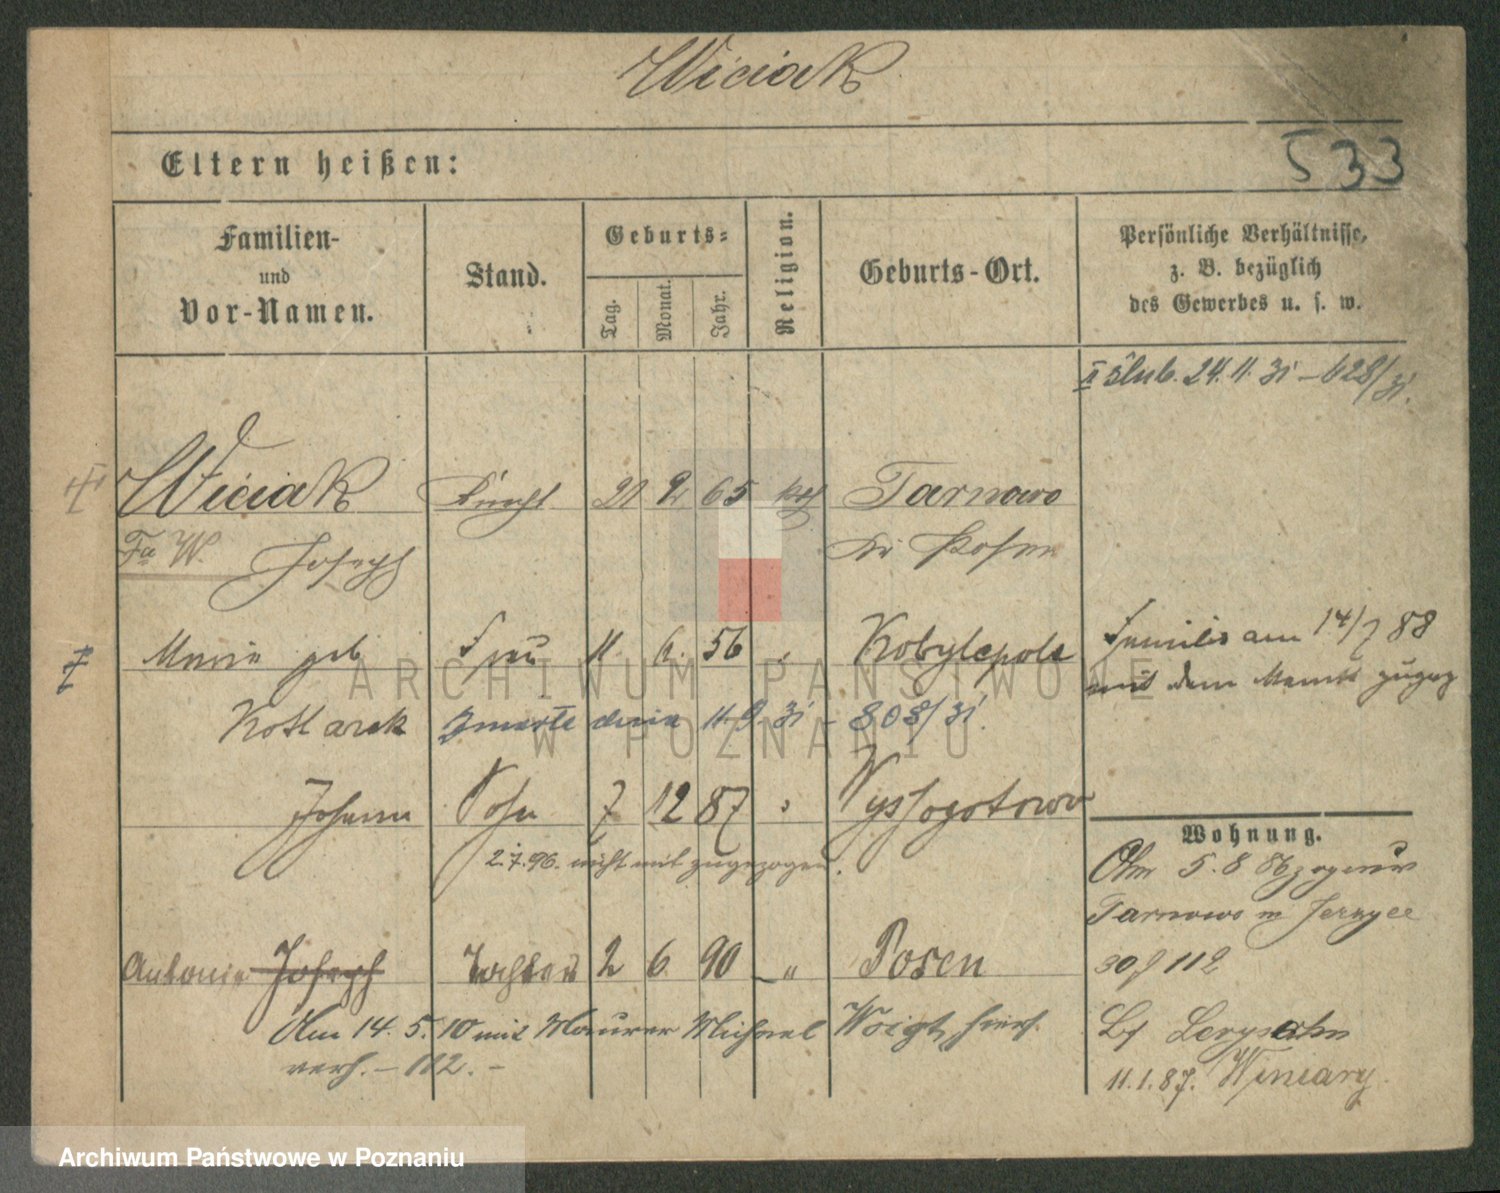 Wiciak
533
Eltern heißen:
Familien-
und
Vor-Namen.
Stand.
Geburts-
Tag.
Monat.
Jahr.
Religion.
Geburts-Ort.
Persönliche Verhältnisse,
z. B. bezüglich
des Gewerbes u. s. w.
II ślub. 24. 11. 31 – 628/31.
Wiciak Knecht 21 2 65 kath Tarnowo
Fa W. Joseph Kr Posen
Maria geb Frau 11. 6. 56 Kobylepole
Familie am 14/7 88
mit dem Manne zugez
Kotlarek zmarła dnia 11. 9. 31 – 808/31.
Johann Sohn 7 12 87 Wyssogotowo
2.7.96. nicht mit zugezogen.
Wohnung.
5. 8 86
Tarnowo Jerzyce
Antonie Joseph Tochter 2 6 90 " Posen
112
Am 14. 5. 10 mit Maurer Michael Voigt, hier
verh. – 112. –
11. 1. 87. Winiary
ARCHIWUM PAŃSTWOWE
W POZNANIU
Archiwum Państwowe w Poznaniu